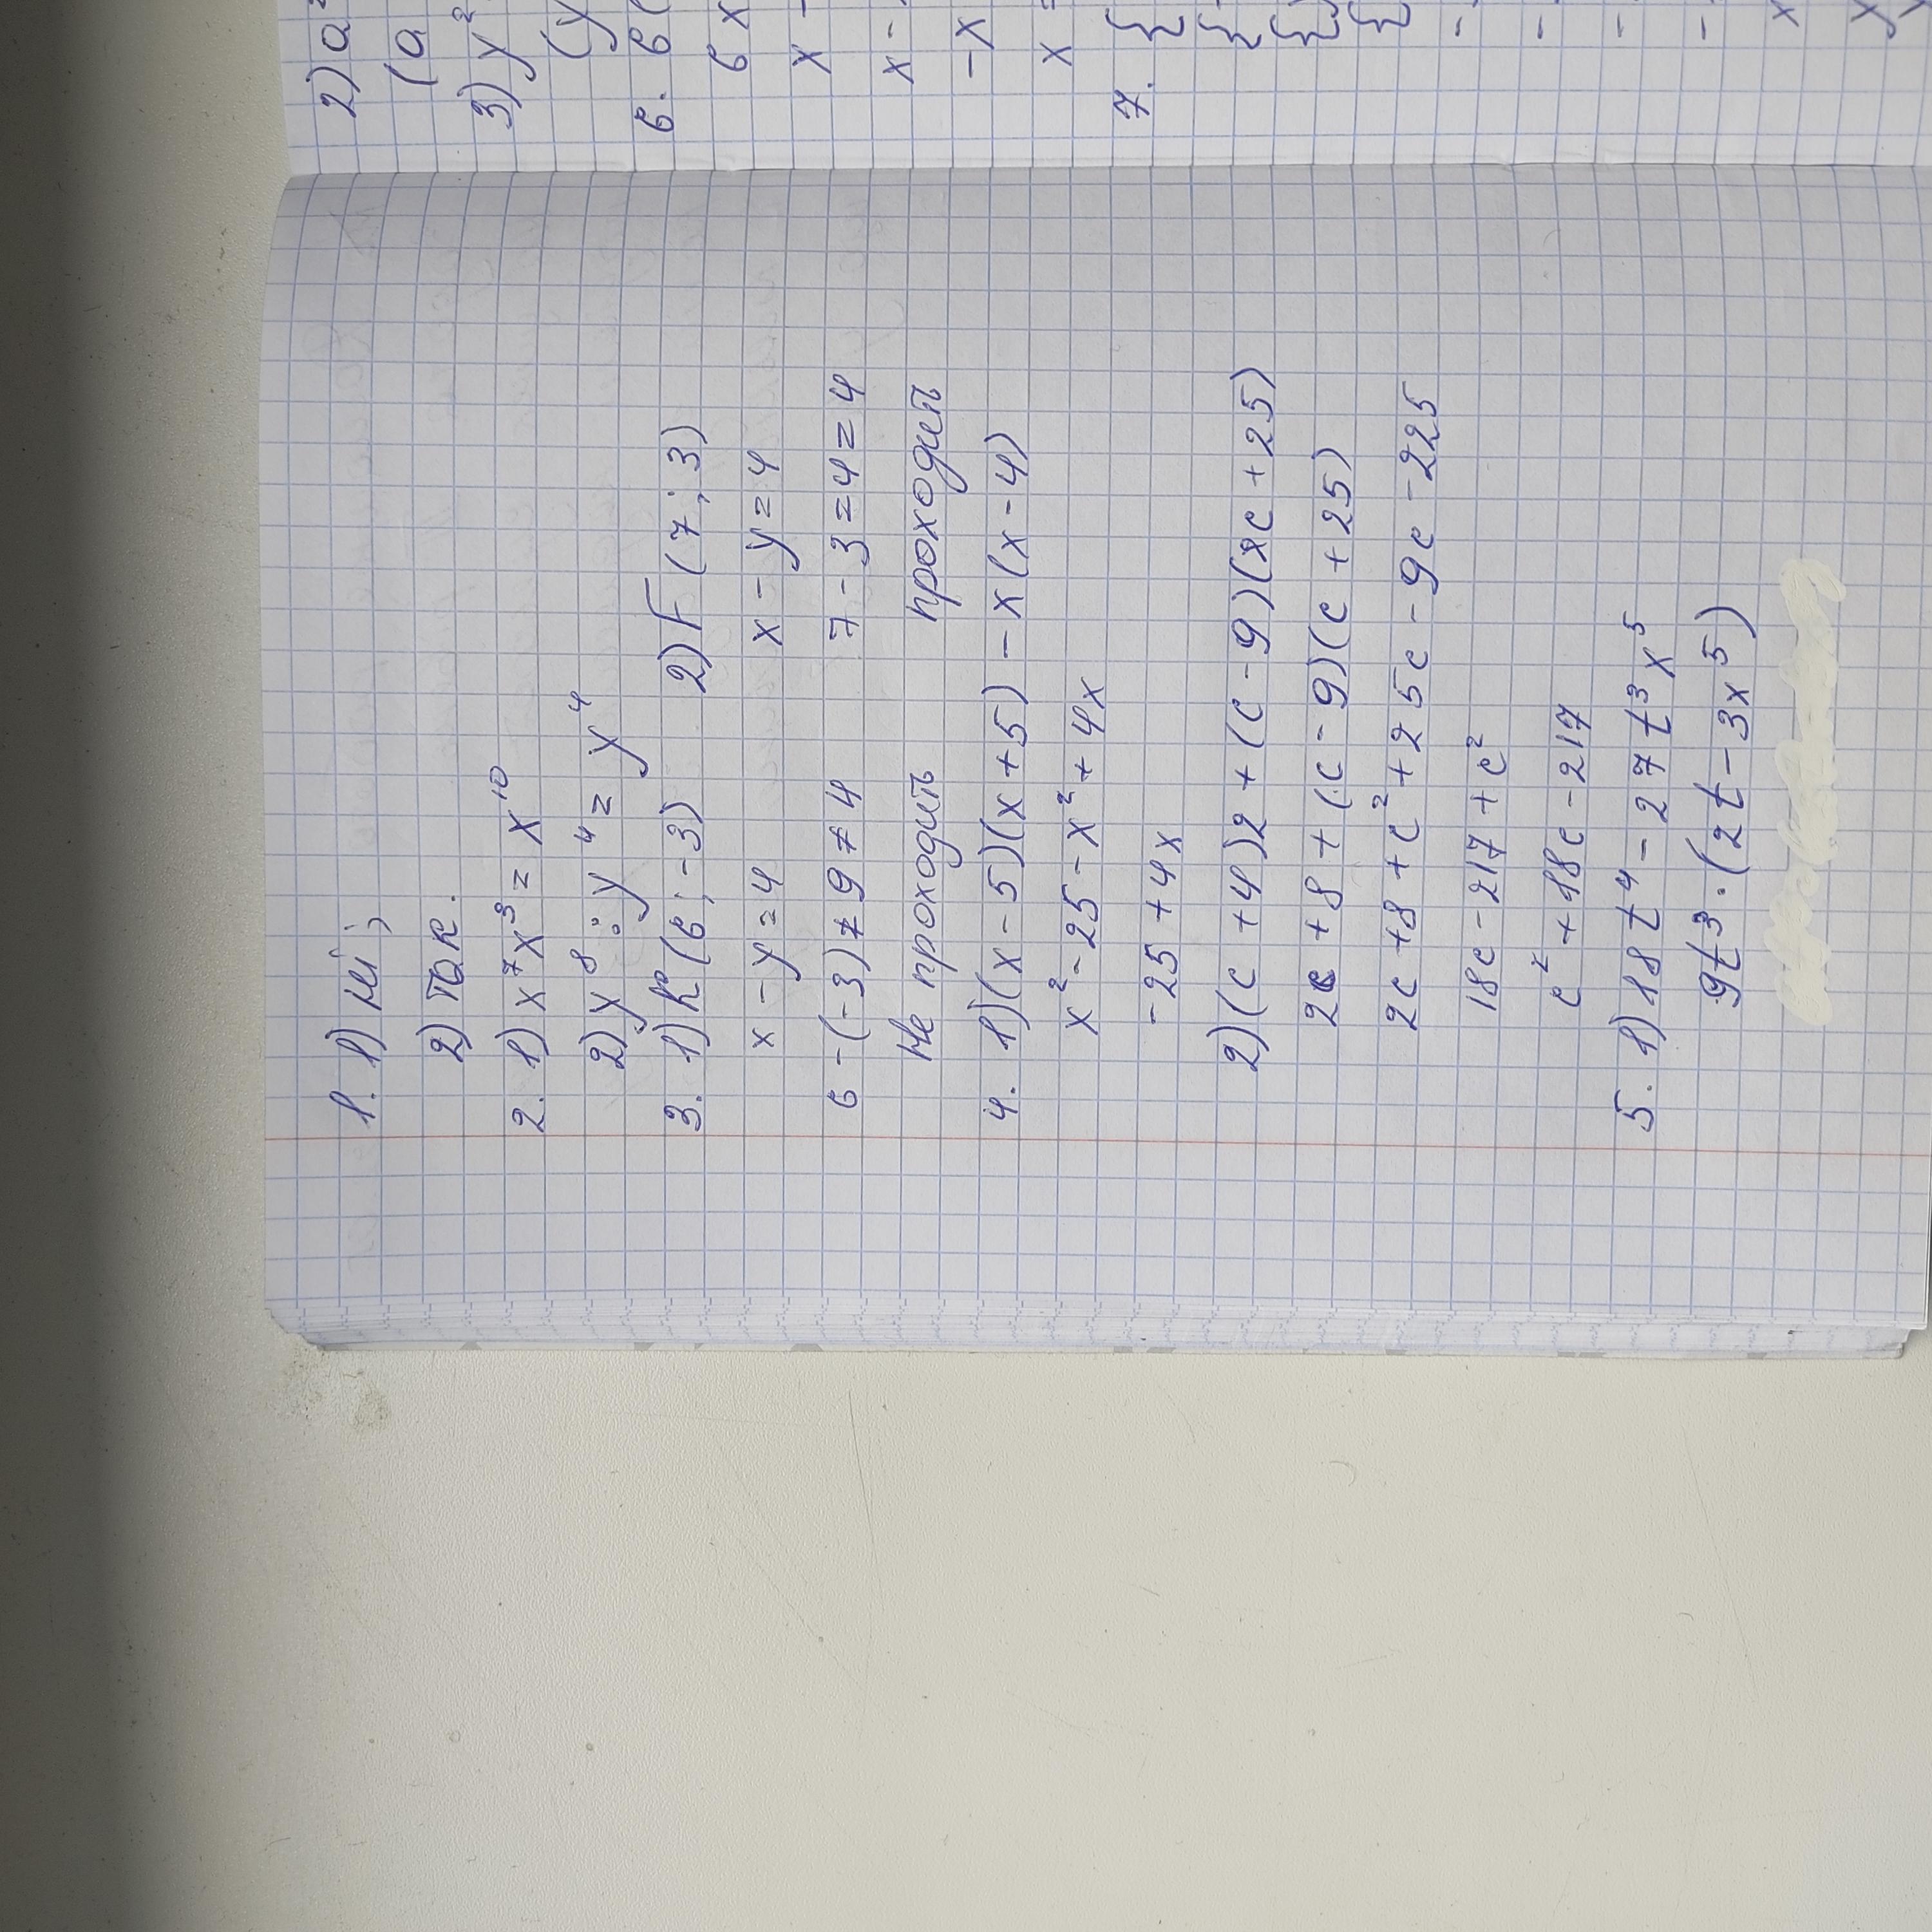 1. 1) ні;
2) так.
2. 1) x⁷x³ = x¹⁰
2) y⁸ : y⁴ = y⁴
3. 1) K(6; -3) 2) F(7; 3)
x - y = 4 x - y = 4
6 - (-3) ≠ 9 ≠ 4 7 - 3 = 4 = 4
Не проходить проходить
4. 1) (x - 5)(x + 5) - x(x - 4)
x² - 25 - x² + 4x
- 25 + 4x
2) (c + 4)2 + (c - 9)(c + 25)
2c + 8 + (c - 9)(c + 25)
2c + 8 + c² + 25c - 9c - 225
18c - 217 + c²
c² + 18c - 217
5. 1) 18t⁴ - 27t³x⁵
9t³ · (2t - 3x⁵)
2) a²
(a
3) y²
(y
6. 6(
6x
x -
x -
-x
x =
7. {
{
{
{
-
-
-
-
x
y